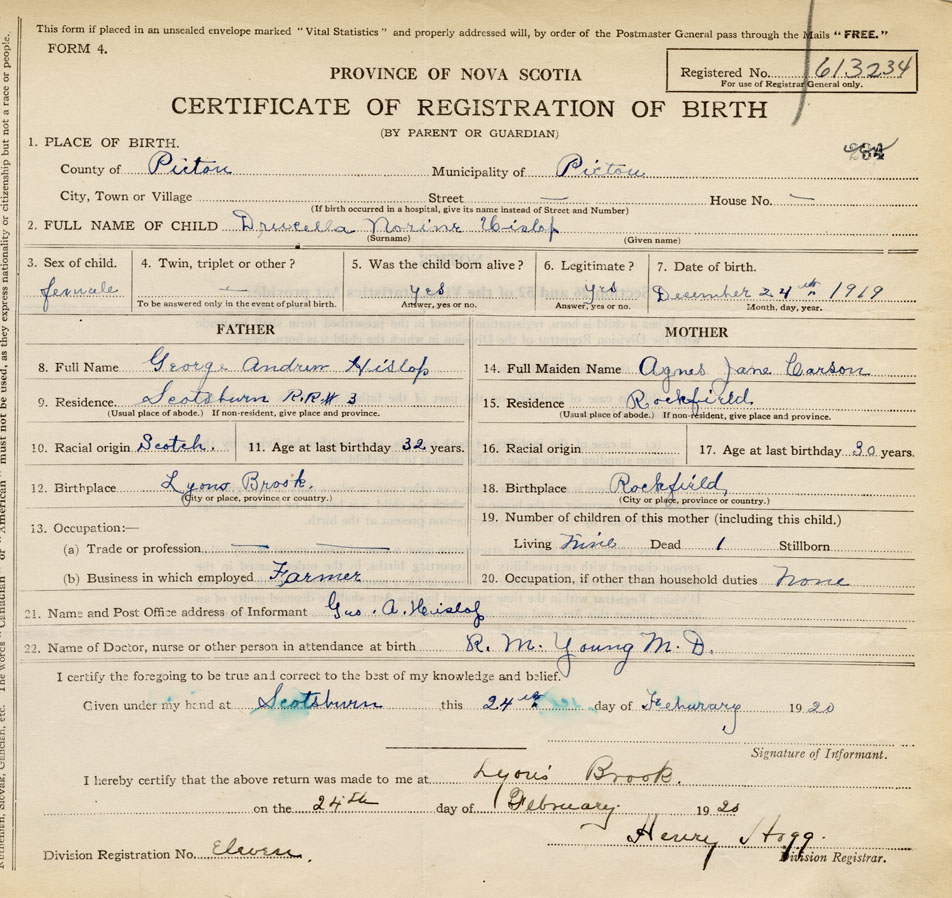 This form if placed in an unsealed envelope marked "Vital Statistics" and properly addressed will, by order of the Postmaster General pass through the Mails "FREE."
FORM 4.
PROVINCE OF NOVA SCOTIA
Registered No. 613234
For use of Registrar General only.
CERTIFICATE OF REGISTRATION OF BIRTH
(BY PARENT OR GUARDIAN)
1. PLACE OF BIRTH.
County of Pictou Municipality of Pictou
City, Town or Village Street — House No. —
(If birth occurred in a hospital, give its name instead of Street and Number)
2. FULL NAME OF CHILD Drucella Norine Hislop
(Surname) (Given name)
3. Sex of child. 4. Twin, triplet or other? 5. Was the child born alive? 6. Legitimate? 7. Date of birth.
female — yes yes December 24th 1919
To be answered only in the event of plural birth. Answer, yes or no. Answer, yes or no. Month, day, year.
FATHER MOTHER
8. Full Name George Andrew Hislop 14. Full Maiden Name Agnes Jane Carson
9. Residence Scotsburn R.R# 3 15. Residence Rockfield
(Usual place of abode.) If non-resident, give place and province. (Usual place of abode.) If non-resident, give place and province.
10. Racial origin Scotch. 11. Age at last birthday 32 years. 16. Racial origin 17. Age at last birthday 30 years.
12. Birthplace Lyons Brook. 18. Birthplace Rockfield,
(City or place, province or country.) (City or place, province or country.)
13. Occupation:— 19. Number of children of this mother (including this child.)
(a) Trade or profession — — Living Dead 1 Stillborn
(b) Business in which employed Farmer 20. Occupation, if other than household duties None
21. Name and Post Office address of Informant Geo. A. Heislop
22. Name of Doctor, nurse or other person in attendance at birth R. M. Young M. D.
I certify the foregoing to be true and correct to the best of my knowledge and belief.
Given under my hand at Scotsburn this 24th day of Feburary 1920
Signature of Informant.
I hereby certify that the above return was made to me at Lyons Brook.
on the 24th day of February 1920
Henry Hogg.
Division Registration No. Eleven. Division Registrar.